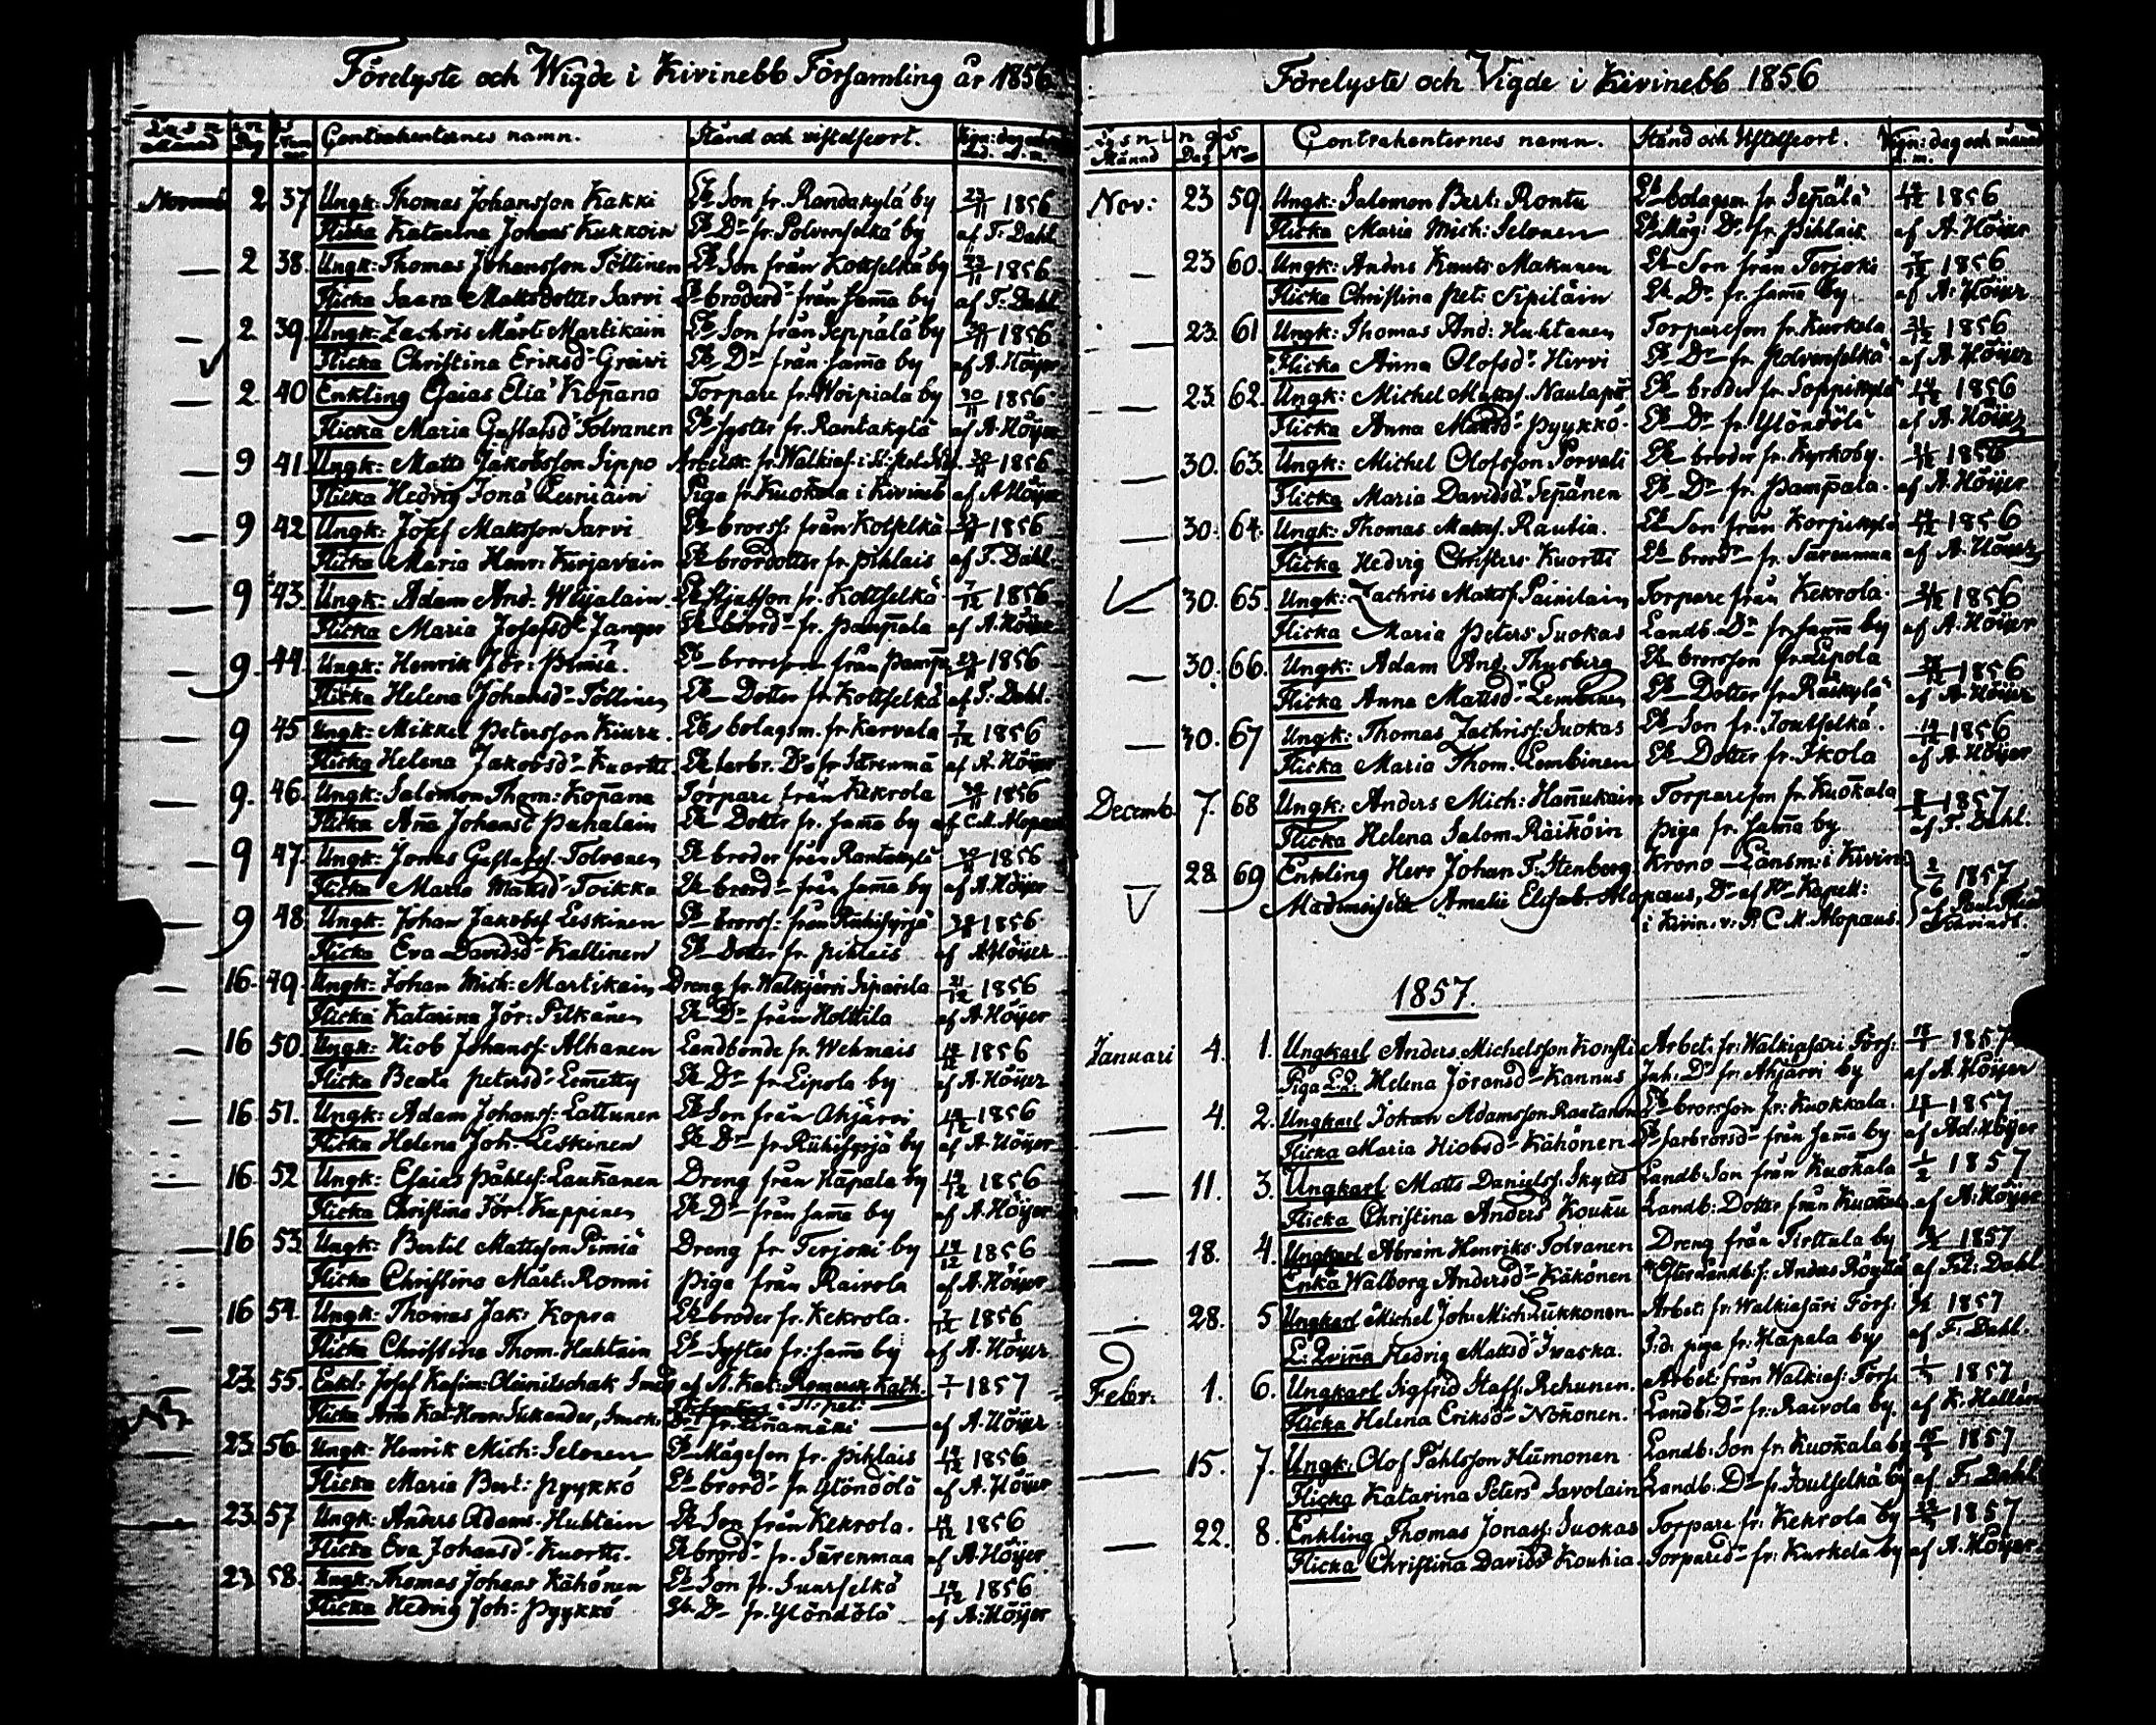 Förelyste och Wigde i Kivinebb Församling år 1856
Contrahenternes namn. Stånd och vistelseort.
2 37 Ungk: Thomas Johansson Kakki Eb Son fr. Randakylä by 23/11 1856
Flicka Katarina Johans Kukkoin Eb Dr fr. Polvenselkä by af F. Dahl
— 2 38. Ungk: Thomas Johansson Töllinen Eb Son från Kottselkä by 23/11 1856
Flicka Saara Mattsdotter Sarvi Eb broderdr från samma by af F. Dahl
— 2 39. Ungk: Zachris Mårt: Martikain Eb Son från Seppälä by 30/11 1856
Flicka Christina Eriksdr Greivi Eb Dr från samma by af A. Höijer
— 2 40 Enkling Esaias Elia Kopana Torpare fr. Woipiala by 30/11 1856
Flicka Maria Gustafsd Tolvanen Eb Syster fr. Rantakylä af A. Höijer
— 9 41. Ungk: Matts Jakobsson Sippo 1856
Flicka Hedvig Jona Piga fr. Kuokala i Kivineb af A Höijer
— 9 42 Ungk: Josef Mattsson Sarvi Eb brorss. från Kotselkä 1856
Flicka Maria Henr: Kurjavain Eb brordotter fr. Pihlais af F. Dahl.
— 9 43. Ungk: Adam And. Eb Stjufson fr. Kottselkä 7/12 1856
Flicka Maria Josefsdr Janger Eb brordr fr. Pampala af A. Höijer
— 9. 44. Ungk: Henrik Jör: Pimiä. Eb brorsson från Pamp 1856
Flicka Helena Johansdr Töllinen Eb Dotter fr. Kottselkä af F. Dahl.
— 9 45 Ungk: Mikkel Petersson Kiuru. Eb bolagsm. fr. Karvala 7/12 1856
Flicka Helena Jakobsdr Kuortti Eb farbr. Dr fr. Särenmä af A. Höijer
— 9. 46. Ungk: Salomon Thom: Kopana Torpare från Kekrola 30/11 1856
Flicka Anna Johansd Puhalain Eb Dotter fr. samma by af C.M. Alopæus
— 9 47. Ungk: Jonas Gustafss. Tolvanen Eb broder från Rantakylä 30/11 1856
Flicka Maria Mattsd Toikka Eb brordr från samma by af A. Höijer
— 9 48. Ungk: Johan Jakobss Leskinen Eb brorss: från Riihisyrjä 1856
Flicka Eva Davidsdr Kallinen Eb Dotter fr. Pihlais af A Höijer
— 16. 49. Ungk: Johan Mich: Martikain Dreng fr. Walkjärvi Siparila 21/12 1856
Flicka Katarina Jör: Pitkänen Eb Dr från Holttila af A. Höijer
— 16 50. Ungk: Hiob Johanss: Alhanen Landbonde fr. Wehmais 14/12 1856
Flicka Beata Petersdr Lemetty Eb Dr fr. Lipola by af A. Höijer
— 16. 51. Ungk: Adam Johanss: Lattunen Eb Son från Ahjärvi 14/12 1856
Flicka Helena Joh: Leskinen Eb Dr fr. Riihisyrjä by af A. Höijer
— 16. 52 Ungk: Esaias Påhlss: Laukanen Dreng från Hapala by 14/12 1856
Flicka Christina Jör: Kuppinen Eb Dr från samma by af A. Höijer
— 16 53. Ungk: Bertil Mattsson Pimiä Dreng fr. Terjoki by 14/12 1856
Flicka Christina Mårt. Ronni Piga från Raivola af A. Höijer
— 16 54. Ungk: Thomas Jak: Kopra Eb broder fr. Kekrola. 7/12 1856
Flicka Christina Thom. Huhtain Eb Syster fr: samma by af A. Höijer
— 23. 55. Enkl: Josef Kasim: 1857
Flicka Anna Kat. fr. Linamäki — af A. Höijer
— 23. 56. Ungk: Henrik Mich: Selonen Eb Mågeson fr. Pihlais 14/12 1856
Flicka Maria Bert: Pyykkö Eb brordr fr Ylöndölä af A. Höijer
— 23. 57 Ungk: Anders Adams. Huhtain Eb Son från Kekrola. 14/12 1856
Flicka Eva Johansd Kuortti. Eb brordr fr. Särenmaa af A. Höijer
23. 58. Ungk: Thomas Johans Kähönen Eb Son fr. Suurselkä 14/12 1856
Flicka Hedvig Joh: Pyykkö Eb. Dr fr. Ylöndölä af A: Höijer
Förelyste och Vigde i Kivinebb 1856
Månad Dag No Contrahenternes namn. Stånd och Vistelseort. Vign: dag och månad
Nov: 23 59. Ungk: Salomon Bert: Rontu Eb bolagsm fr. Sepälä 14/12 1856
Flicka Maria Mich: Selonen Eb Måg: Dr fr. Pihlais af A. Höijer
— 23 60. Ungk: Anders Knuts Makunen Eb Son från Terjoki 7/12 1856
Flicka Christina Pet: Sipiläin Eb Dr fr. samma by af A: Höijer
— 23. 61 Ungk: Thomas And: Huhtanen Torpareson fr. Kurkela 21/12 1856
Flicka Anna Olofsdr Hirvi Eb Dr fr Polvenselkä af A. Höijer
— 23. 62. Ungk: Michel Matss. Naulapä Eb broder fr. Soppikylä 14/12 1856
Flicka Anna Mattsd Pyykkö. Eb Dr fr. Ylöndölä af A. Höijer
— 30. 63. Ungk: Michel Olofsson Porvali Eb broder fr. Kyrkoby. 1856
Flicka Maria Davidsd. Sepänen Eb Dr fr. Pampala. af A. Höijer
— 30. 64. Ungk: Thomas Matss. Rautia. Eb Son från Korpikylä 14/12 1856
Flicka Hedvig Christers. Kuortti Eb brordr fr. Särenmaa af A. Höijer
— 30. 65. Ungk: Zachris Mattss. Painilain Torpare från Kekrola. 1856
Flicka Maria Peters Suokas Landb. Dr fr. samma by af A. Höijer
— 30. 66. Ungk: Adam And. Thusberg Eb brorsson fr. Lipola 1856
Flicka Anna Mattsdr Lembinen Eb Dotter fr. Räikylä af A. Höijer
— 30. 67 Ungk: Thomas Zachriss: Suokas Eb Son fr. Joutselkä. 14/12 1856
Flicka Maria Thom. Lembinen Eb Dotter fr. Ikola af A. Höijer
Decemb. 7. 68 Ungk: Anders Mich: Hannukain Torpareson fr. Kuokala 1857
Flicka Helena Salom. Räiköin Piga fr. samma by af F. Dahl.
28. 69 Enkling Herr Johan F. Stenberg Krono Länsm: i Kivin 2/6 1857
Mademoiselle Amalie Elisab. Alopæus, Dr af Hr Kapell: af Paul
i Kivin. v. P. C. M. Alopæus.
1857.
Januari 4. 1. Ungkarl Anders Michelsson Arbet: fr: Walkiasari Förs: 18/1 1857
Piga Helena Jöransdr Kannus Inh: Dr fr. Ahjärvi by af A. Höijer
— 4. 2. Ungkarl Johan Adamsson Rautanen Eb brorsson fr: Kuokkala. 18/1 1857
Flicka Maria Hiobsdr Kähönen Eb farbrorsdr från samma by af Ad. Höijer
— 11. 3. Ungkarl Matts Danielss: Skyttä Landb: Son från Kuokala 1/2 1857
Flicka Christina Anders Kouku Landb: Dotter från Kuokala. af A. Höijer
— 18. 4. Ungkarl Abram Henriks. Tolvanen Dreng från Tirttula by 1857
Enka Walborg Andersdr Käkönen Efter Landb. f. Anders af F. Dahl
— 28. 5 Ungkarl Michel Joh: Mich: Liikkonen Arbet: fr: Walkiasari Förs: 1857
Hedvig Mattsd Ivaska. piga fr: Hapala by af F. Dahl.
Febr: 1. 6. Ungkarl Sigfrid Staff: Rehunen. Arbet: från Walkias: Förs: 1857
Flicka Helena Eriksdr Nokonen. Landb: Dr fr: Raivola by. af K. Hellen
— 15. 7. Ungk: Olof Påhlsson Humonen Landb: Son fr: Kuokala by 1857
Flicka Katarina Peters Savolain Landb: Dr fr. Joutselkä by af F. Dahl
— 22. 8. Enkling Thomas Jonass: Suokas Torpare fr: Kekrola by 1857
Flicka Christina Davids Kouhia. Torparedr fr: Kurkela by af A. Höijer.